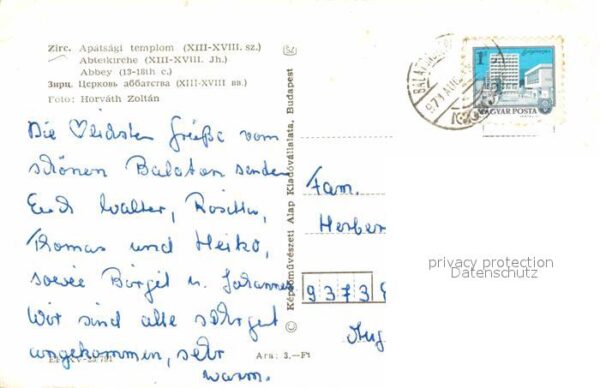 Zirc. Apátsági templom (XIII-XVIII. sz.)
Abteikirche (XIII-XVIII. Jh.)
Abbey (13-18th c.)
Зирц. Церковь аббатства (XIII-XVIII вв.)
Foto: Horváth Zoltán
Die ♡lichsten Grüße vom
schönen Balaton senden
Euch Walter, Rositta,
Thomas und Heiko,
sowie Birgit u. Johannes
Wir sind alle sehr gut
angekommen, sehr
warm.
Ára: 3.—Ft
© Képzőművészeti Alap Kiadóvállalata, Budapest
1 Ft
MAGYAR POSTA
Fam.
Herber
9373
Aug
privacy protection
Datenschutz